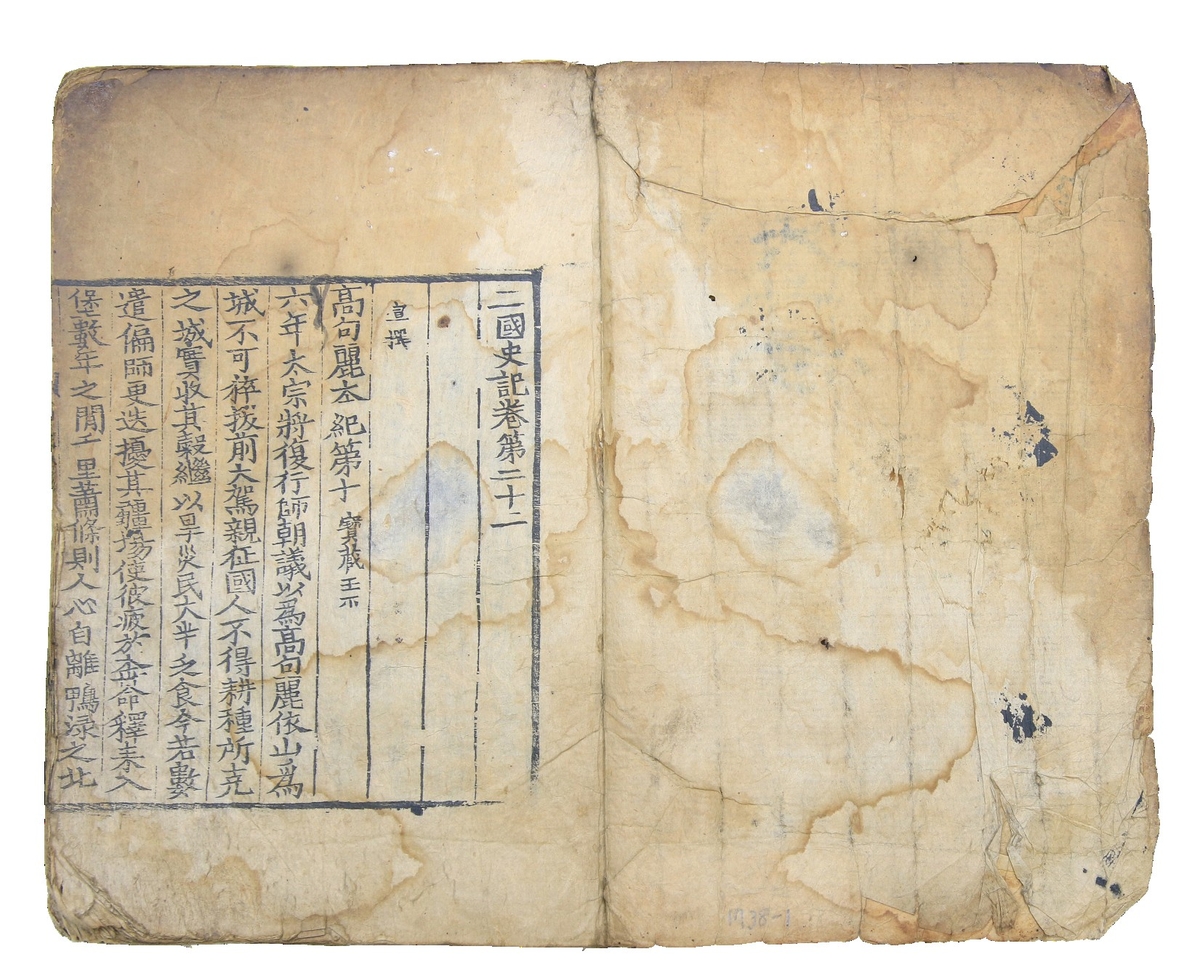 二國史記卷第二十一
宣撰
高句麗本紀第十 寶藏王下
六年太宗將復行師朝議以爲高句麗依山爲
城不可猝拔前大駕親征國人不得耕種所克
之城實收其穀繼以旱災民大半乏食今若數
遣偏師更迭擾其疆場使彼疲於奔命釋耒入
堡數年之間千里蕭條則人心自離鴨淥之北
1738-1